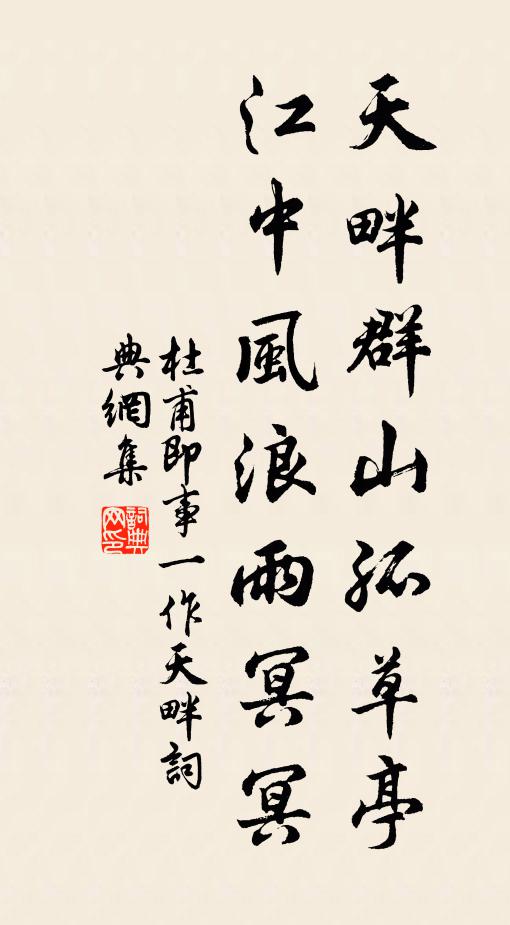 天畔群山孤草亭
江中風浪雨冥冥
杜甫即事一作天畔詞
典網集
詞典網印